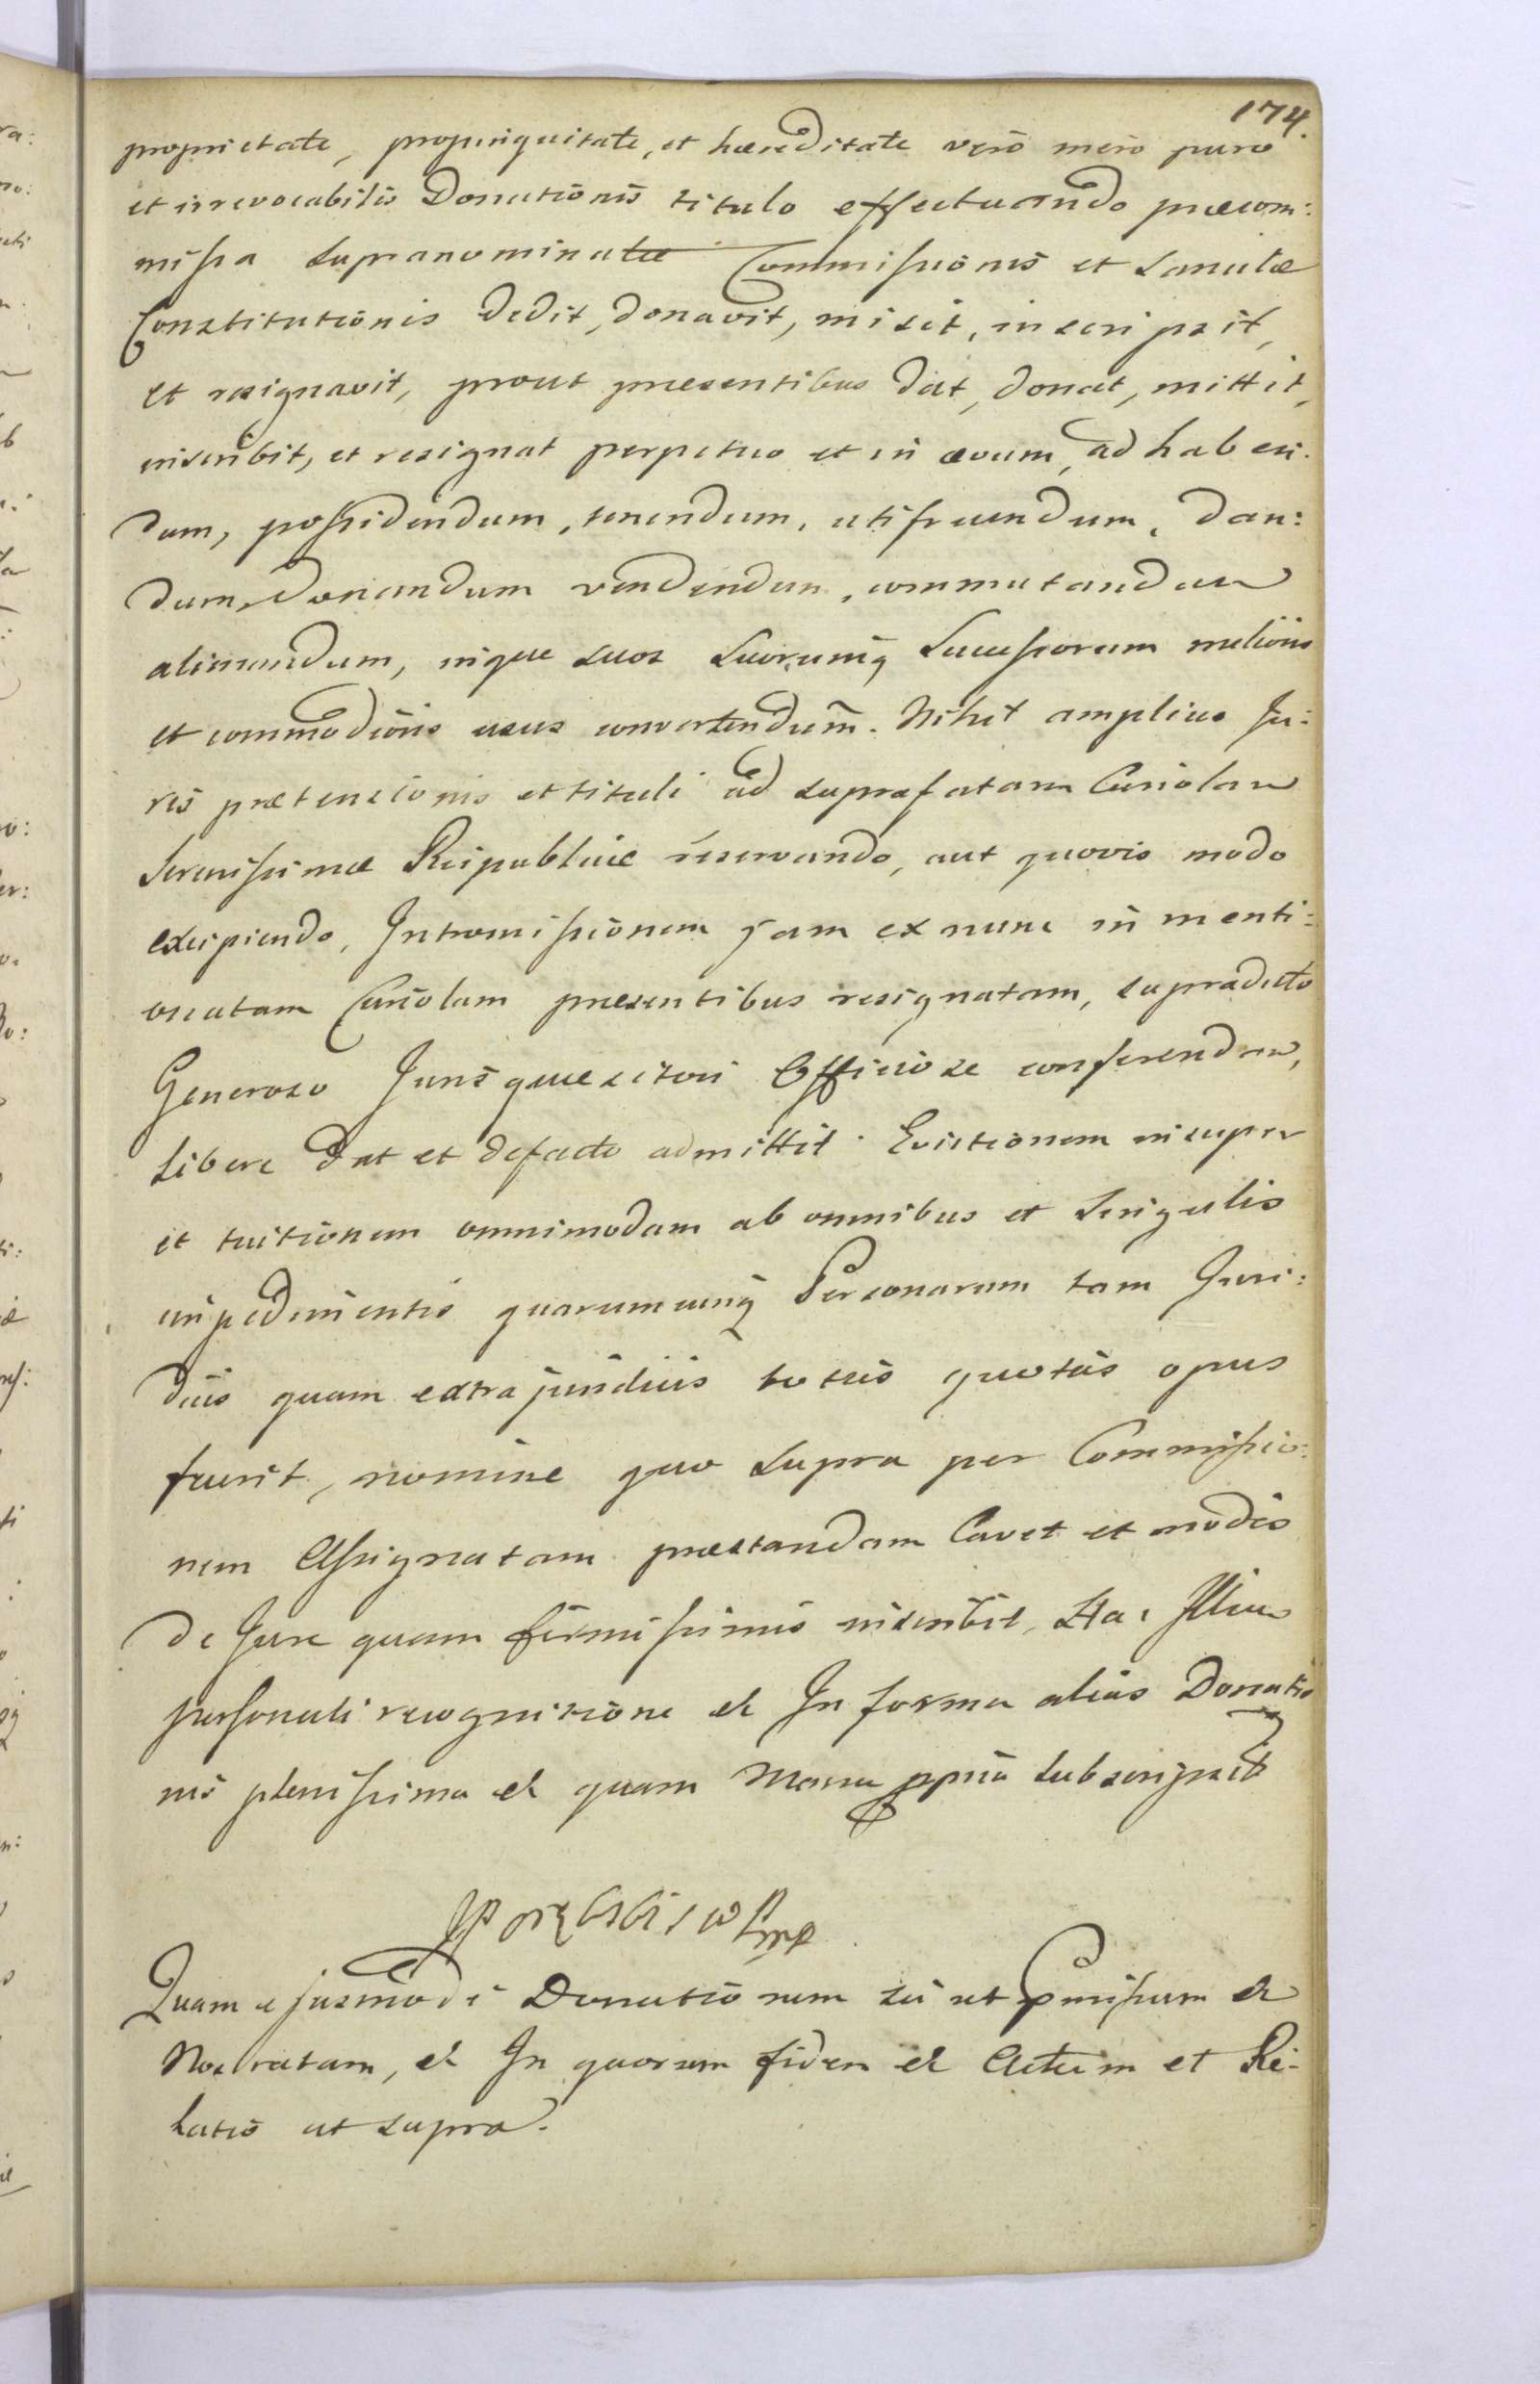 174.
proprietate, propinquitate, et hæreditate verō mero puro
et irrevocabilis Donationis titulo effectuando præcom:
missa supranominatæ Commissionis et sancitæ
Constitutionis dedit, donavit, misit, inscripsit,
et resignavit, prout præsentibus dat, donat, mittit,
inscribit, et resignat perpetuo et in ævum, ad haben:
dum, possidendum, tenendum, utifruendum, dan:
dum, donandum vendendum, commutandum
alienandum, inque suos suorumq Successorum meliores
et commodiores usus convertendum. Nihil amplius Ju:
ris prætensionis et tituli ad suprafatam Curiolam
Serenissimæ Reipublicæ reservando, aut quovis modo
excipiendo, Intromissionem jam ex nunc in menti:
onatam Curiolam præsentibus resignatam, supradicto
Generoso Jurisquæsitori Officiose conferendam,
libere dat et defacto admittit. Evictionem insuper
et tuitionem omnimodam ab omnibus et Singulis
impedimentis quarumcunq Personarum tam Juri:
dicis quam extrajuridicis toties quoties opus
fuerit, nomine quo supra per Commissio:
nem Assignatam præstandam Cavet et modis
de Jure quam firmissimis inscribit, Hac
personali recognitione et In forma alias Donatio
nis plenissima et quam Manu ppria subscripsit
Quam ejusmodi Donationem
ratam, et In quorum fidem et Actum et Re:
latio ut supra.